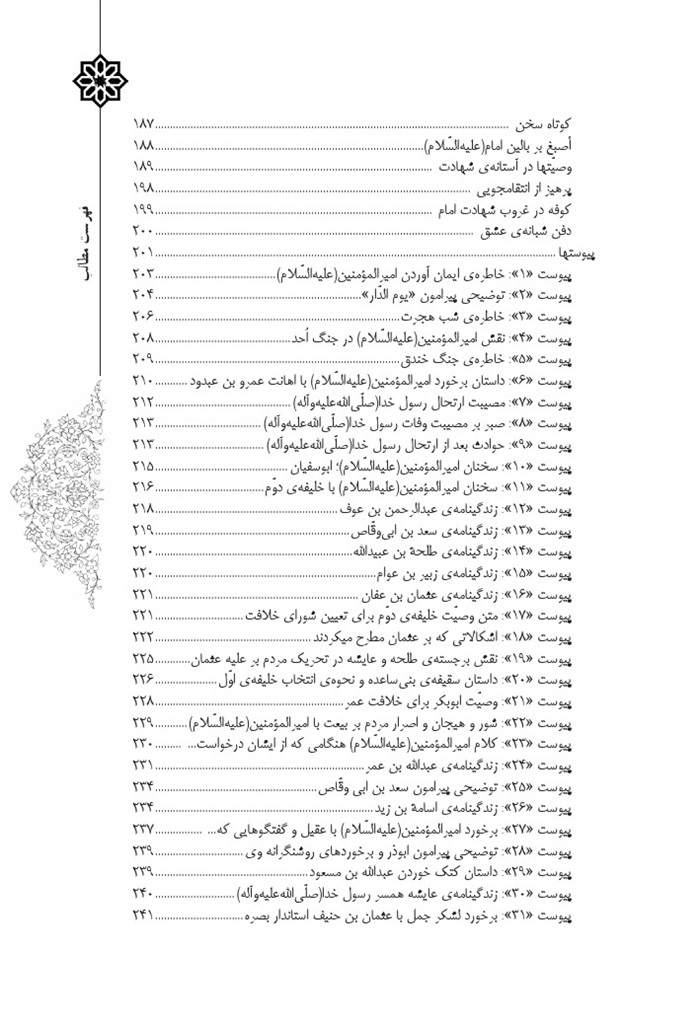 فهرست مطالب
کوتاه سخن ........ ۱۸۷
أصبغ بر بالین امام(علیه‌السّلام) ........ ۱۸۸
وصیّتها در آستانه‌ی شهادت ........ ۱۸۹
پرهیز از انتقامجویی ........ ۱۹۸
کوفه در غروب شهادت امام ........ ۱۹۹
دفن شبانه‌ی عشق ........ ۲۰۰
پیوستها ........ ۲۰۱
پیوست «۱»: خاطره‌ی ایمان آوردن امیرالمؤمنین(علیه‌السّلام) ........ ۲۰۳
پیوست «۲»: توضیحی پیرامون «یوم الدّار» ........ ۲۰۴
پیوست «۳»: خاطره‌ی شب هجرت ........ ۲۰۶
پیوست «۴»: نقش امیرالمؤمنین(علیه‌السّلام) در جنگ اُحد ........ ۲۰۸
پیوست «۵»: خاطره‌ی جنگ خندق ........ ۲۰۹
پیوست «۶»: داستان برخورد امیرالمؤمنین(علیه‌السّلام) با اهانت عمرو بن عبدود ........ ۲۱۰
پیوست «۷»: مصیبت ارتحال رسول خدا(صلّی‌الله‌علیه‌وآله) ........ ۲۱۲
پیوست «۸»: صبر بر مصیبت وفات رسول خدا(صلّی‌الله‌علیه‌وآله) ........ ۲۱۳
پیوست «۹»: حوادث بعد از ارتحال رسول خدا(صلّی‌الله‌علیه‌وآله) ........ ۲۱۳
پیوست «۱۰»: سخنان امیرالمؤمنین(علیه‌السّلام)؛ ابوسفیان ........ ۲۱۵
پیوست «۱۱»: سخنان امیرالمؤمنین(علیه‌السّلام) با خلیفه‌ی دوّم ........ ۲۱۶
پیوست «۱۲»: زندگینامه‌ی عبدالرحمن بن عوف ........ ۲۱۸
پیوست «۱۳»: زندگینامه‌ی سعد بن ابی‌وقّاص ........ ۲۱۹
پیوست «۱۴»: زندگینامه‌ی طلحة بن عبیدالله ........ ۲۲۰
پیوست «۱۵»: زندگینامه‌ی زبیر بن عوام ........ ۲۲۰
پیوست «۱۶»: زندگینامه‌ی عثمان بن عفان ........ ۲۲۱
پیوست «۱۷»: متن وصیّت خلیفه‌ی دوّم برای تعیین شورای خلافت ........ ۲۲۱
پیوست «۱۸»: اشکالاتی که بر عثمان مطرح میکردند ........ ۲۲۲
پیوست «۱۹»: نقش برجسته‌ی طلحه و عایشه در تحریک مردم بر علیه عثمان ........ ۲۲۵
پیوست «۲۰»: داستان سقیفه‌ی بنی‌ساعده و نحوه‌ی انتخاب خلیفه‌ی اوّل ........ ۲۲۶
پیوست «۲۱»: وصیّت ابوبکر برای خلافت عمر ........ ۲۲۸
پیوست «۲۲»: شور و هیجان و اصرار مردم بر بیعت با امیرالمؤمنین(علیه‌السّلام) ........ ۲۲۹
پیوست «۲۳»: کلام امیرالمؤمنین(علیه‌السّلام) هنگامی که از ایشان درخواست... ........ ۲۳۰
پیوست «۲۴»: زندگینامه‌ی عبدالله بن عمر ........ ۲۳۱
پیوست «۲۵»: توضیحی پیرامون سعد بن ابی وقّاص ........ ۲۳۴
پیوست «۲۶»: زندگینامه‌ی اسامة بن زید ........ ۲۳۴
پیوست «۲۷»: برخورد امیرالمؤمنین(علیه‌السّلام) با عقیل و گفتگوهایی که... ........ ۲۳۷
پیوست «۲۸»: توضیحی پیرامون ابوذر و برخوردهای روشنگرانه وی ........ ۲۳۹
پیوست «۲۹»: داستان کتک خوردن عبدالله بن مسعود ........ ۲۳۹
پیوست «۳۰»: زندگینامه‌ی عایشه همسر رسول خدا(صلّی‌الله‌علیه‌وآله) ........ ۲۴۰
پیوست «۳۱»: برخورد لشکر جمل با عثمان بن حنیف استاندار بصره ........ ۲۴۱